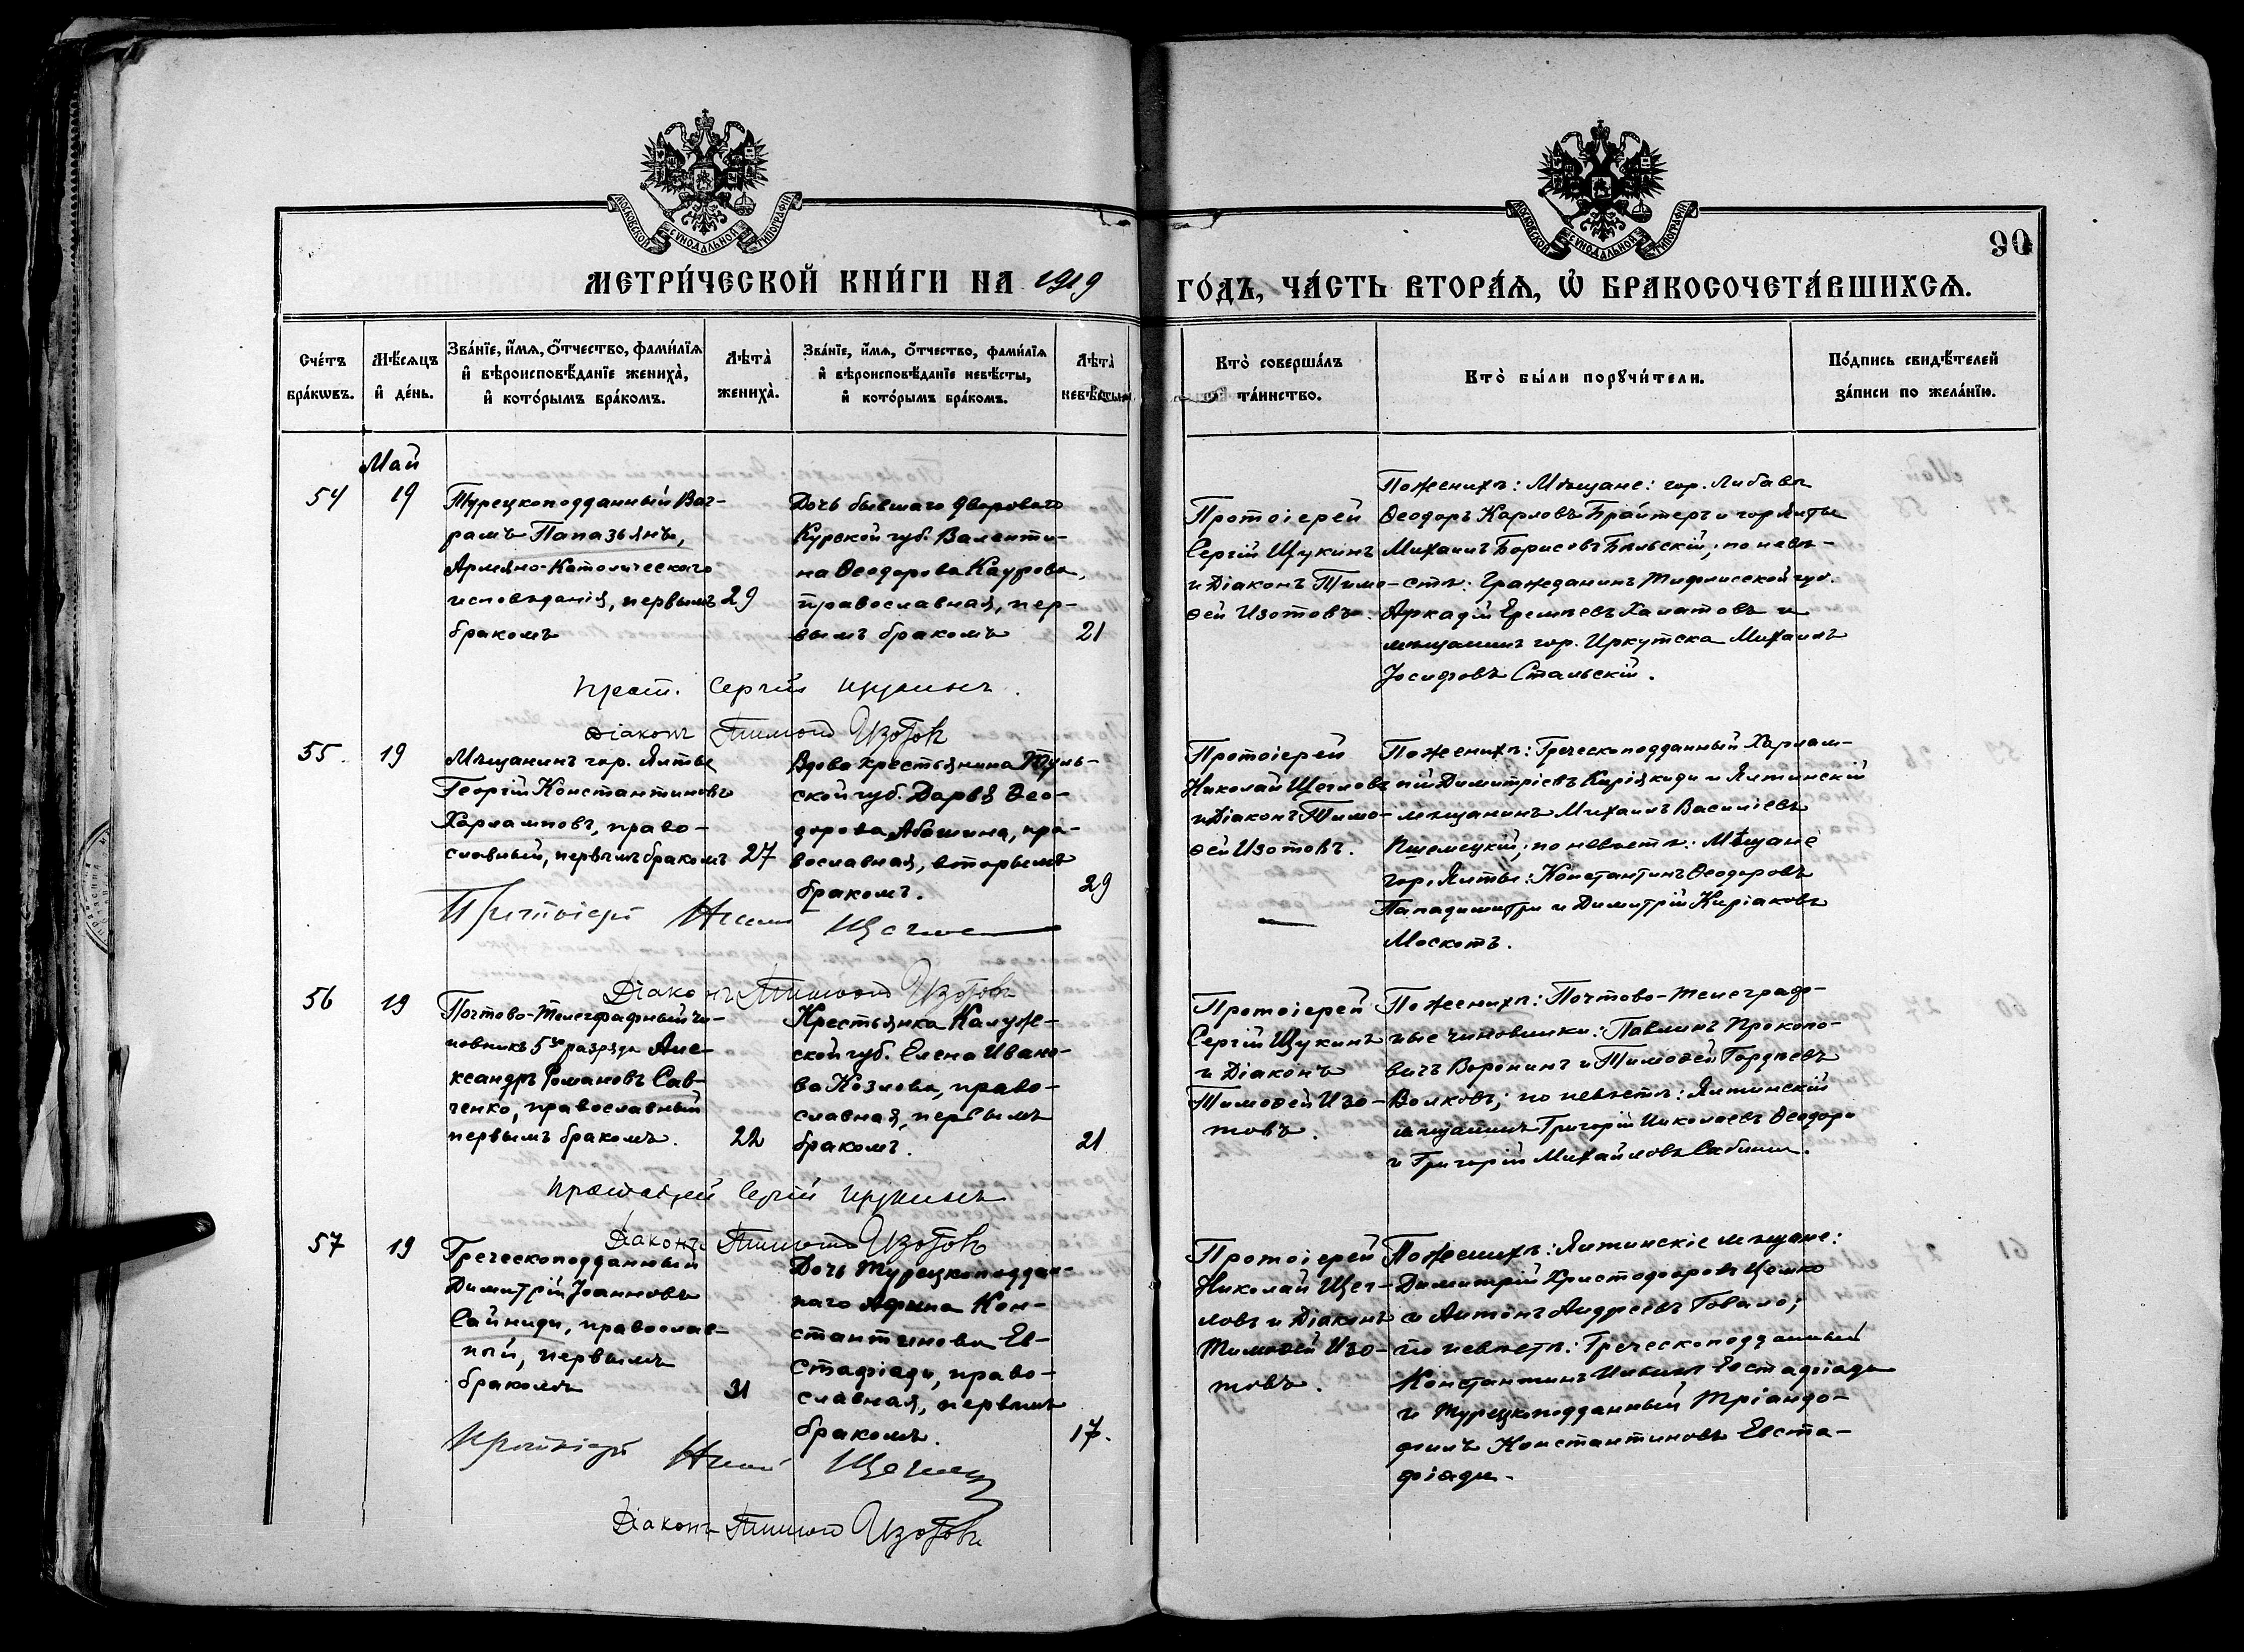 МОСКОВСКОЙ СѴНОДАЛЬНОЙ ТИПОГРАФІИ.
МОСКОВСКОЙ СѴНОДАЛЬНОЙ ТИПОГРАФІИ.
90
МЕТРИ́ЧЕСКОЙ КНИ́ГИ НА 1919 ГО́ДЪ, ЧА́СТЬ ВТОРА́Я, Ѡ҆ БРАКОСОЧЕТА́ВШИХСЯ.
Сче́тъ бра́кωвъ.
Мѣ́сяцъ и҆ де́нь.
Зва́нїе, и҆́мя, ѻ҆́тчество, фами́лїя
и҆ вѣроисповѣ́данїе жениха̀,
и҆ кото́рымъ бра́комъ.
Лѣта̀ жениха̀.
Зва́нїе, и҆́мя, ѻ҆́тчество, фами́лїя
и҆ вѣроисповѣ́данїе невѣ́сты,
и҆ кото́рымъ бра́комъ.
Лѣта̀ невѣ́сты.
Кто̀ соверша́лъ
та́инство.
Кто̀ бы́ли порꙋчи́тели.
По́дпись свидѣ́телей
за́писи по жела́нїю.
Май
54
19
Турецкоподданный Ваг-
рамъ Папазьянъ,
Армяно-Католическаго
исповѣданія, первымъ
бракомъ
29
Дочь бывшаго дворового
Курской губ. Валенти-
на Ѳеодорова Каурова,
православная, пер-
вымъ бракомъ
21
Протоіерей
Сергій Щукинъ
и Діаконъ Тимо-
ѳей Изотовъ.
По женихѣ: Мѣщане: гор. Либавы
Ѳеодоръ Карловъ Брайтеръ и гор Ялты
Михаилъ Борисовъ Бѣльскій; по невѣ-
стѣ: Гражданинъ Тифлисской губ.
Аркадій Еремѣевъ Халатовъ и
мѣщанинъ гор. Иркутска Михаилъ
Іосифовъ Стальскій.
Прот. Сергій Щукинъ.
Діаконъ Тимоѳей Изотовъ
55.
19
Мѣщанинъ гор. Ялты
Георгій Константиновъ
Харламповъ, право-
славный, первымъ бракомъ
27
Вдова крестьянина Туль-
ской губ. Дарья Ѳео-
дорова Абашина, пра-
вославная, вторымъ
бракомъ.
29
Протоіерей
Николай Щегловъ
и Діаконъ Тимо-
ѳей Изотовъ.
По женихѣ: Греческоподданный Харлам-
пій Димитріевъ Киріякиди и Ялтинскій
мѣщанинъ Михаилъ Василіевъ
Пшемецкій; по невѣстѣ: Мѣщане
гор. Ялты: Константинъ Ѳеодоровъ
Пападимитри и Димитрій Киріаковъ
Москотъ.
Протоіерей Николай Щегловъ
Діаконъ Тимоѳей Изотовъ
56
19
Почтово-Телеграфный чи-
новникъ 5го разряда Але-
ксандръ Романовъ Сав-
ченко, православный
первымъ бракомъ.
22
Крестьянка Калуж-
ской губ. Елена Ивано-
ва Козлова, право-
славная, первымъ
бракомъ.
21
Протоіерей
Сергій Щукинъ
и Діаконъ
Тимоѳей Изо-
товъ.
По женихѣ: Почтово-телеграф-
ные чиновники: Павлинъ Прокопо-
вичъ Воронинъ и Тимоѳей Гордѣевъ
Волковъ; по невѣстѣ: Ялтинскій
мѣщанинъ Григорій Николаевъ Ѳеодори
и Григорій Михайловъ Сабинин.
Протоіерей Сергій Щукинъ
Діаконъ Тимоѳей Изотовъ
57
19
Греческоподданный
Димитрій Іоанновъ
Сайниди, православ-
ный, первымъ
бракомъ
31
Дочь турецкоподдан-
наго Афина Кон-
стантинова Ев-
стафіади, право-
славная, первымъ
бракомъ.
17.
Протоіерей
Николай Щег-
ловъ и Діаконъ
Тимоѳей Изо-
товъ.
По женихѣ: Ялтинскіе мѣщане:
Димитрій Христофоровъ Цемко
и Антонъ Андреевъ Говало;
по невѣстѣ: Греческоподданный
Константинъ Ильичъ Евстафіади
и турецкоподданный Тріандо-
филъ Константиновъ Евста-
фіади.
Протоіерей Николай Щегловъ
Діаконъ Тимоѳей Изотовъ